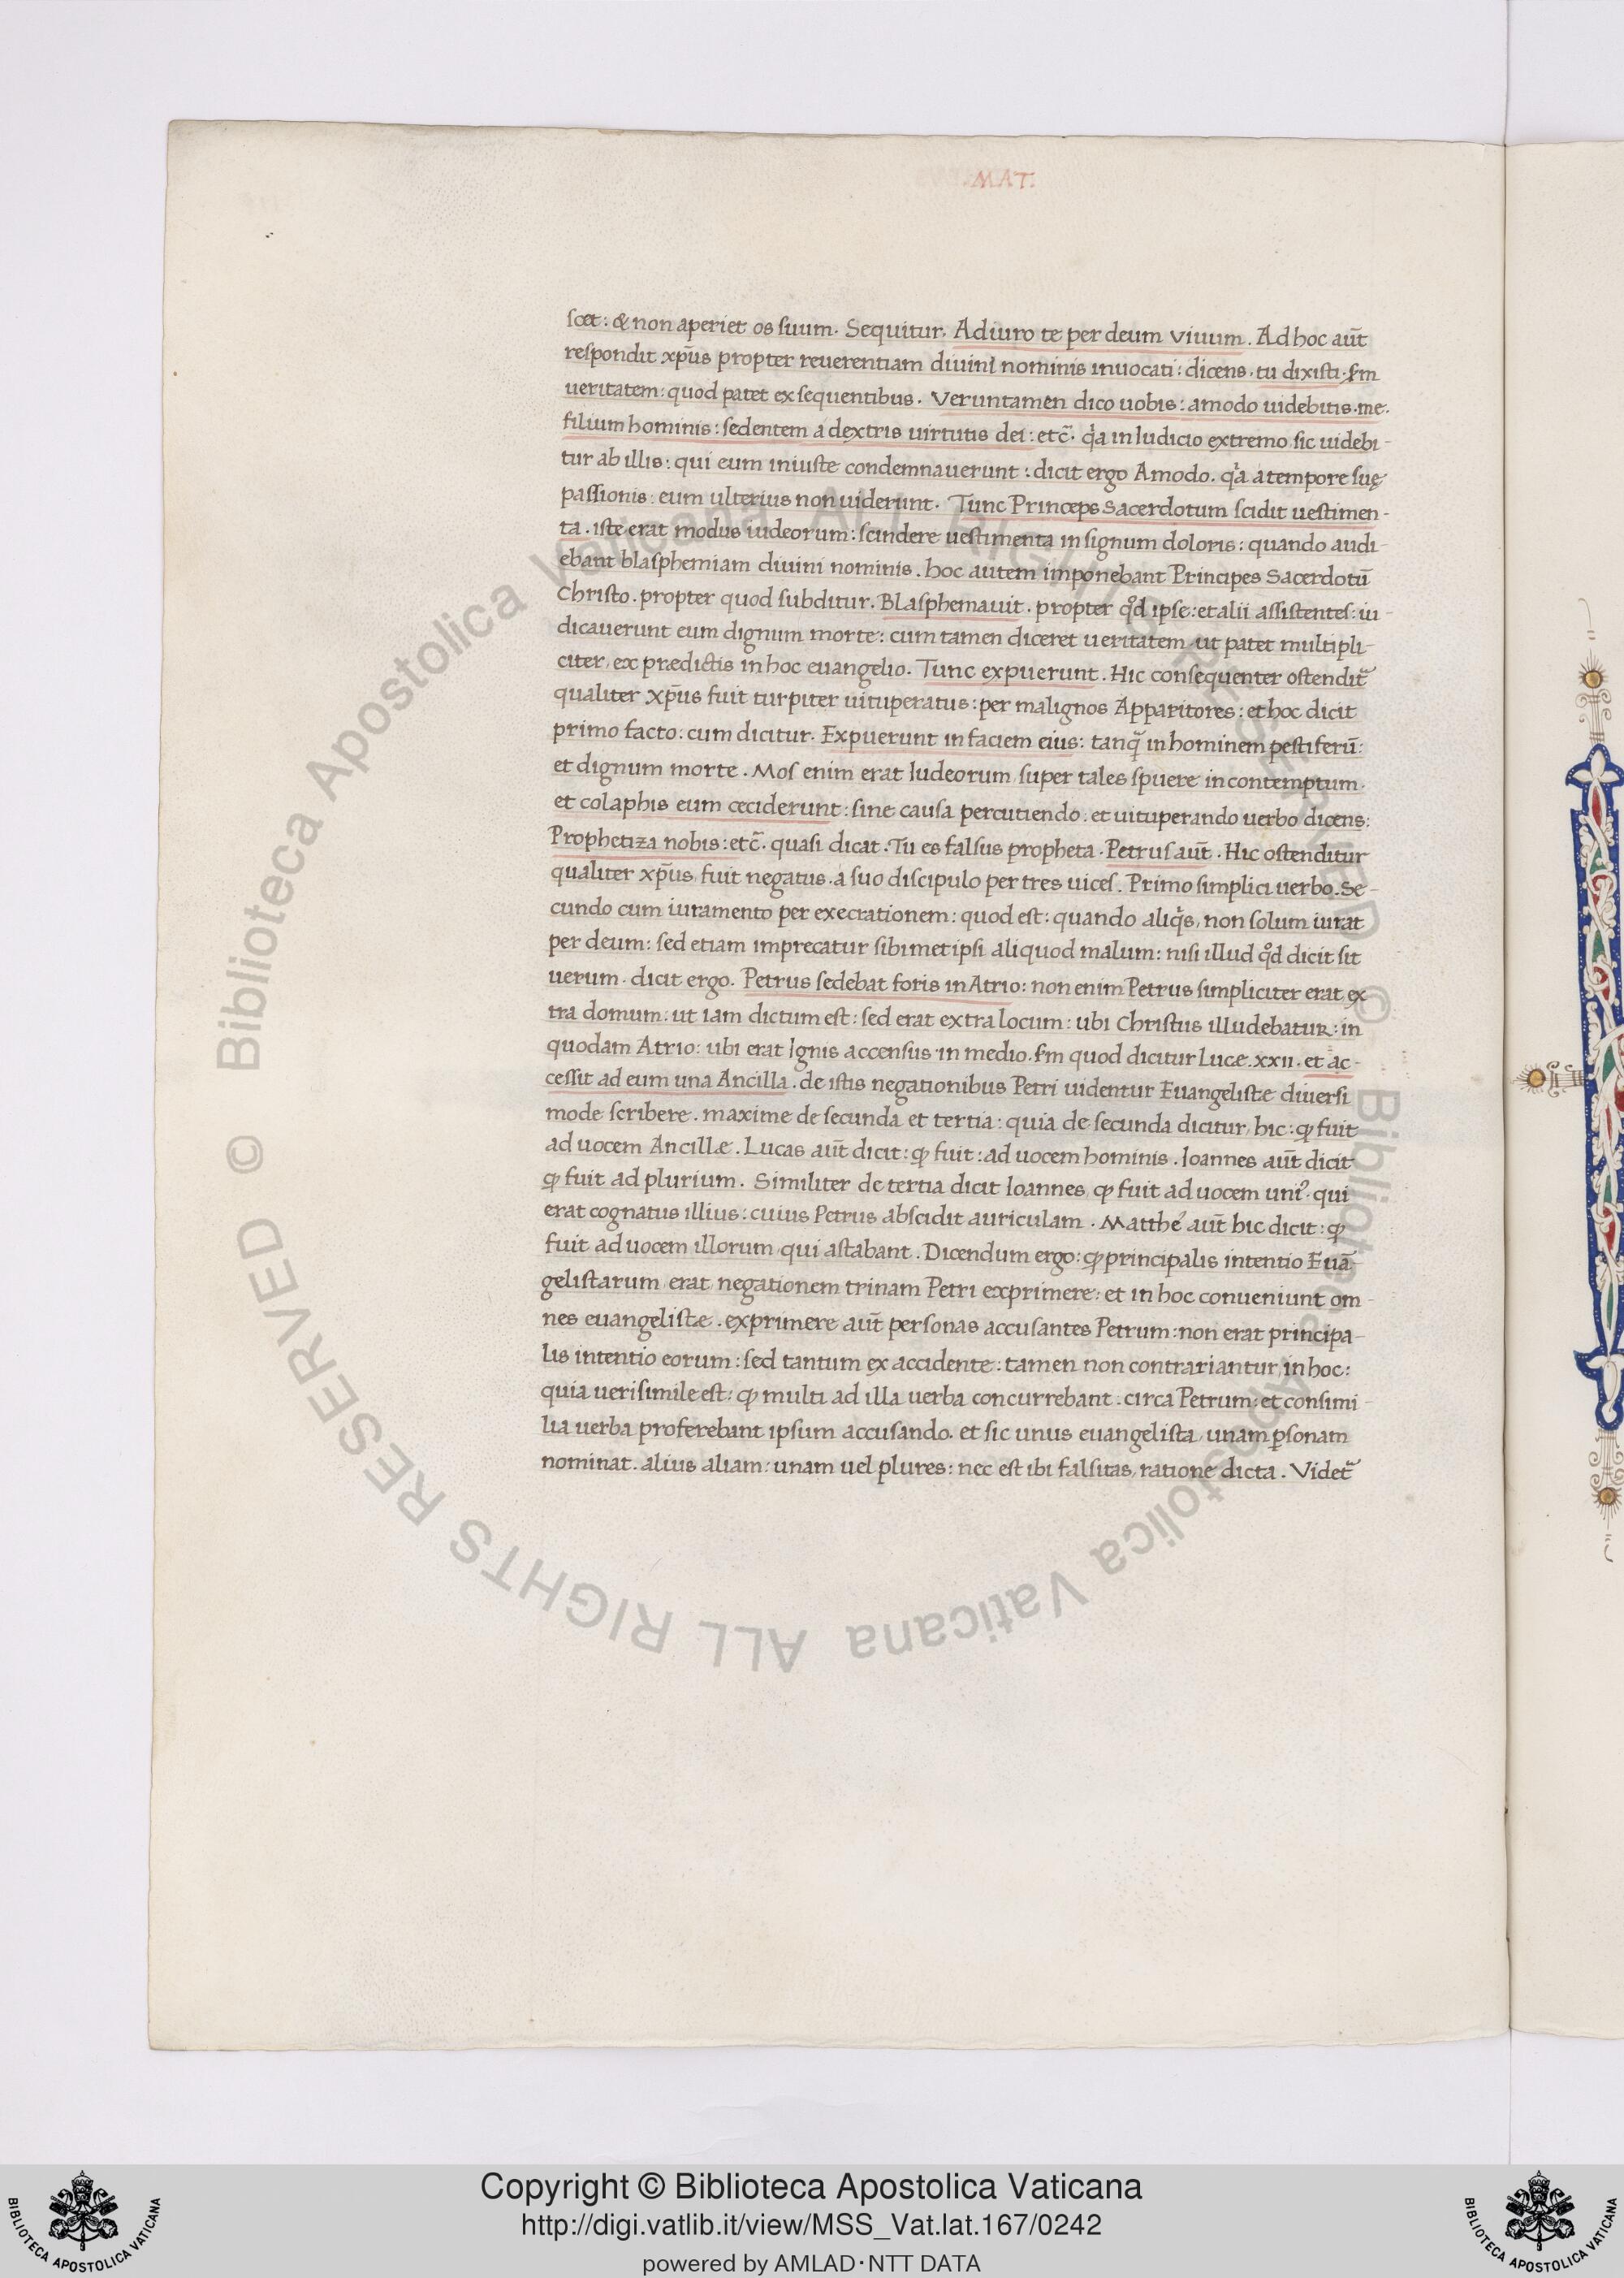 .MAT.
scet: & non aperiet os suum. Sequitur. Adiuro te per deum viuum. Ad hoc aut̄
respondit xp̄us propter reuerentiam diuini nominis inuocati: dicens. tu dixisti. s̄m
ueritatem: quod patet ex sequentibus. Veruntamen dico uobis: amodo uidebitis. me.
filium hominis: sedentem a dextris uirtutis dei: etc̄. qͥa in Iudicio extremo sic uidebi-
tur ab illis: qui eum iniuste condemnauerunt: dicit ergo Amodo. qͥa a tempore suę
passionis: eum ulterius non uiderunt. Tunc Princeps Sacerdotum scidit uestimen-
ta. iste erat modus iudeorum: scindere uestimenta in signum doloris: quando audi-
ebant blasphemiam diuini nominis. hoc autem imponebant Principes Sacerdotū
Christo. propter quod subditur. Blasphemauit. propter qͦd ipse: et alii assistentes: iu-
dicauerunt eum dignum morte: cum tamen diceret ueritatem, ut patet multipli-
citer, ex prædictis in hoc euangelio. Tunc expuerunt. Hic consequenter ostendit᷑
qualiter xp̄us fuit turpiter uituperatus: per malignos Apparitores: et hoc dicit
primo facto: cum dicitur. Expuerunt in faciem eius: tanq̄ in hominem pestiferū:
et dignum morte. Mos enim erat Iudeorum, super tales spuere in contemptum.
et colaphis eum ceciderunt: sine causa percutiendo. et uituperando uerbo dicens:
Prophetiza nobis: etc̄. quasi dicat. Tu es falsus propheta. Petrus aut̄. Hic ostenditur
qualiter xp̄us, fuit negatus. a suo discipulo per tres uices. Primo simplici uerbo. Se-
cundo cum iuramento per execrationem: quod est: quando aliqͥs, non solum iurat
per deum: sed etiam imprecatur sibimet ipsi aliquod malum: nisi illud qͦd dicit sit
uerum. dicit ergo. Petrus sedebat foris in Atrio: non enim Petrus simpliciter erat ex
tra domum: ut iam dictum est: sed erat extra locum: ubi Christus illudebatur: in
quodam Atrio: ubi erat Ignis accensus in medio. s̄m quod dicitur Lucæ. xxii. et ac-
cessit ad eum una Ancilla. de istis negationibus Petri uidentur Euangelistæ diuersi
mode scribere. maxime de secunda et tertia: quia de secunda dicitur, hic: ꝙ fuit
ad uocem Ancillæ. Lucas aut̄ dicit: ꝙ fuit: ad uocem hominis. Ioannes aut̄ dicit
ꝙ fuit ad plurium. Similiter de tertia dicit Ioannes, ꝙ fuit ad uocem uniꝰ. qui
erat cognatus illius: cuius Petrus abscidit auriculam. Mattheꝰ aut̄ hic dicit: ꝙ
fuit ad uocem illorum, qui astabant. Dicendum ergo: ꝙ principalis intentio Euā-
gelistarum, erat, negationem trinam Petri exprimere: et in hoc conueniunt om-
nes euangelistæ. exprimere aut̄ personas accusantes Petrum: non erat principa-
lis intentio eorum: sed tantum ex accidente: tamen non contrariantur, in hoc:
quia uerisimile est: ꝙ multi ad illa uerba concurrebant. circa Petrum: et consimi-
lia uerba proferebant ipsum accusando. et sic unus euangelista, unam ꝑsonam
nominat. alius aliam: unam uel plures: nec est ibi falsitas, ratione dicta. Videt᷑
© Biblioteca Apostolica Vaticana ALL RIGHTS RESERVED © Biblioteca Apostolica Vaticana ALL RIGHTS RESERVED
Copyright © Biblioteca Apostolica Vaticana
http://digi.vatlib.it/view/MSS_Vat.lat.167/0242
powered by AMLAD·NTT DATA
BIBLIOTECA APOSTOLICA VATICANA
BIBLIOTECA APOSTOLICA VATICANA